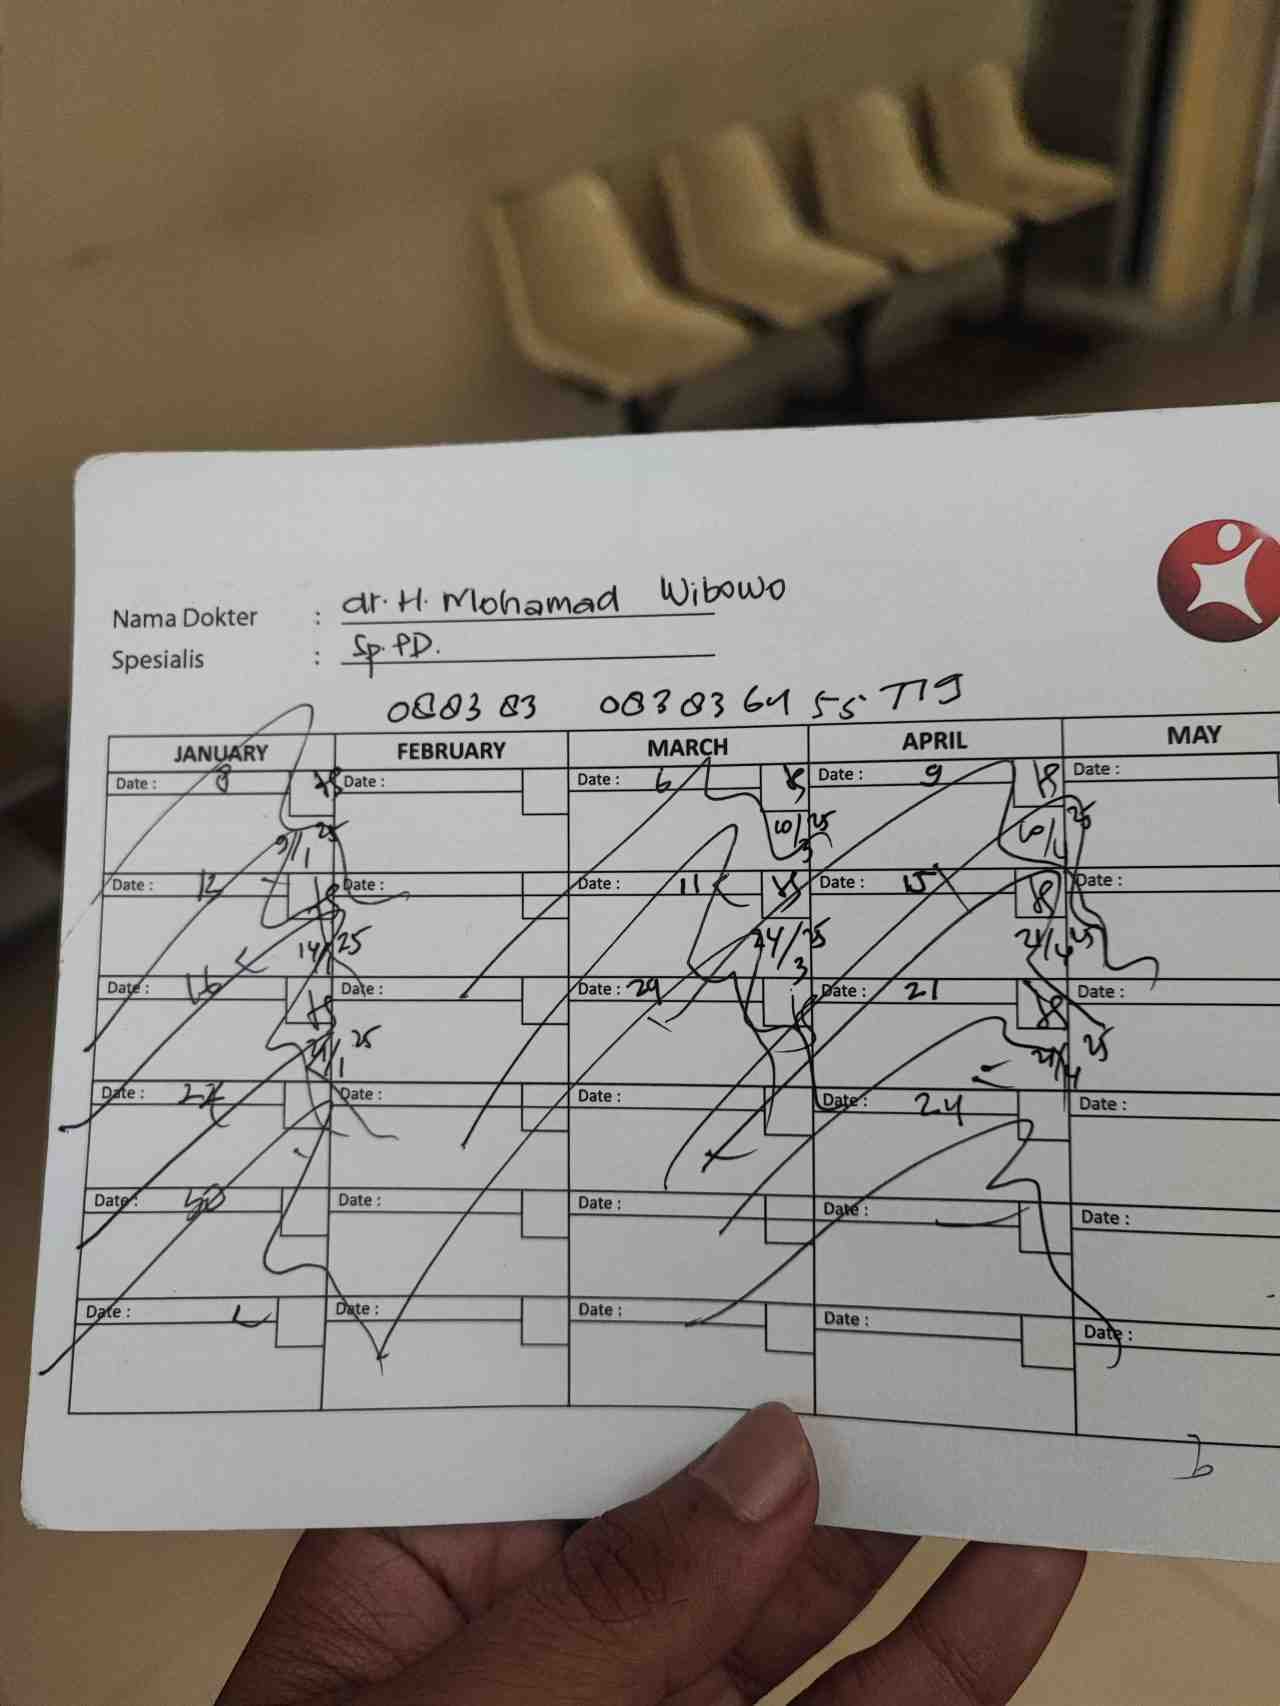 Nama Dokter : dr. H. Mohamad Wibowo
Spesialis : Sp. PD.
JANUARY FEBRUARY MARCH APRIL MAY
Date : 8 Date : Date : 6 Date : 9 Date :
9/1 25 10/3 25 10/4 25
Date : 12 Date : Date : 11 Date : 15 Date :
14/1 25 24/3 25 21/4 25
Date : 16 Date : Date : 29 Date : 21 Date :
21/1 25 21/4 25
Date : 22 Date : Date : Date : 24 Date :
Date : Date : Date : Date : Date :
Date : Date : Date : Date : Date :